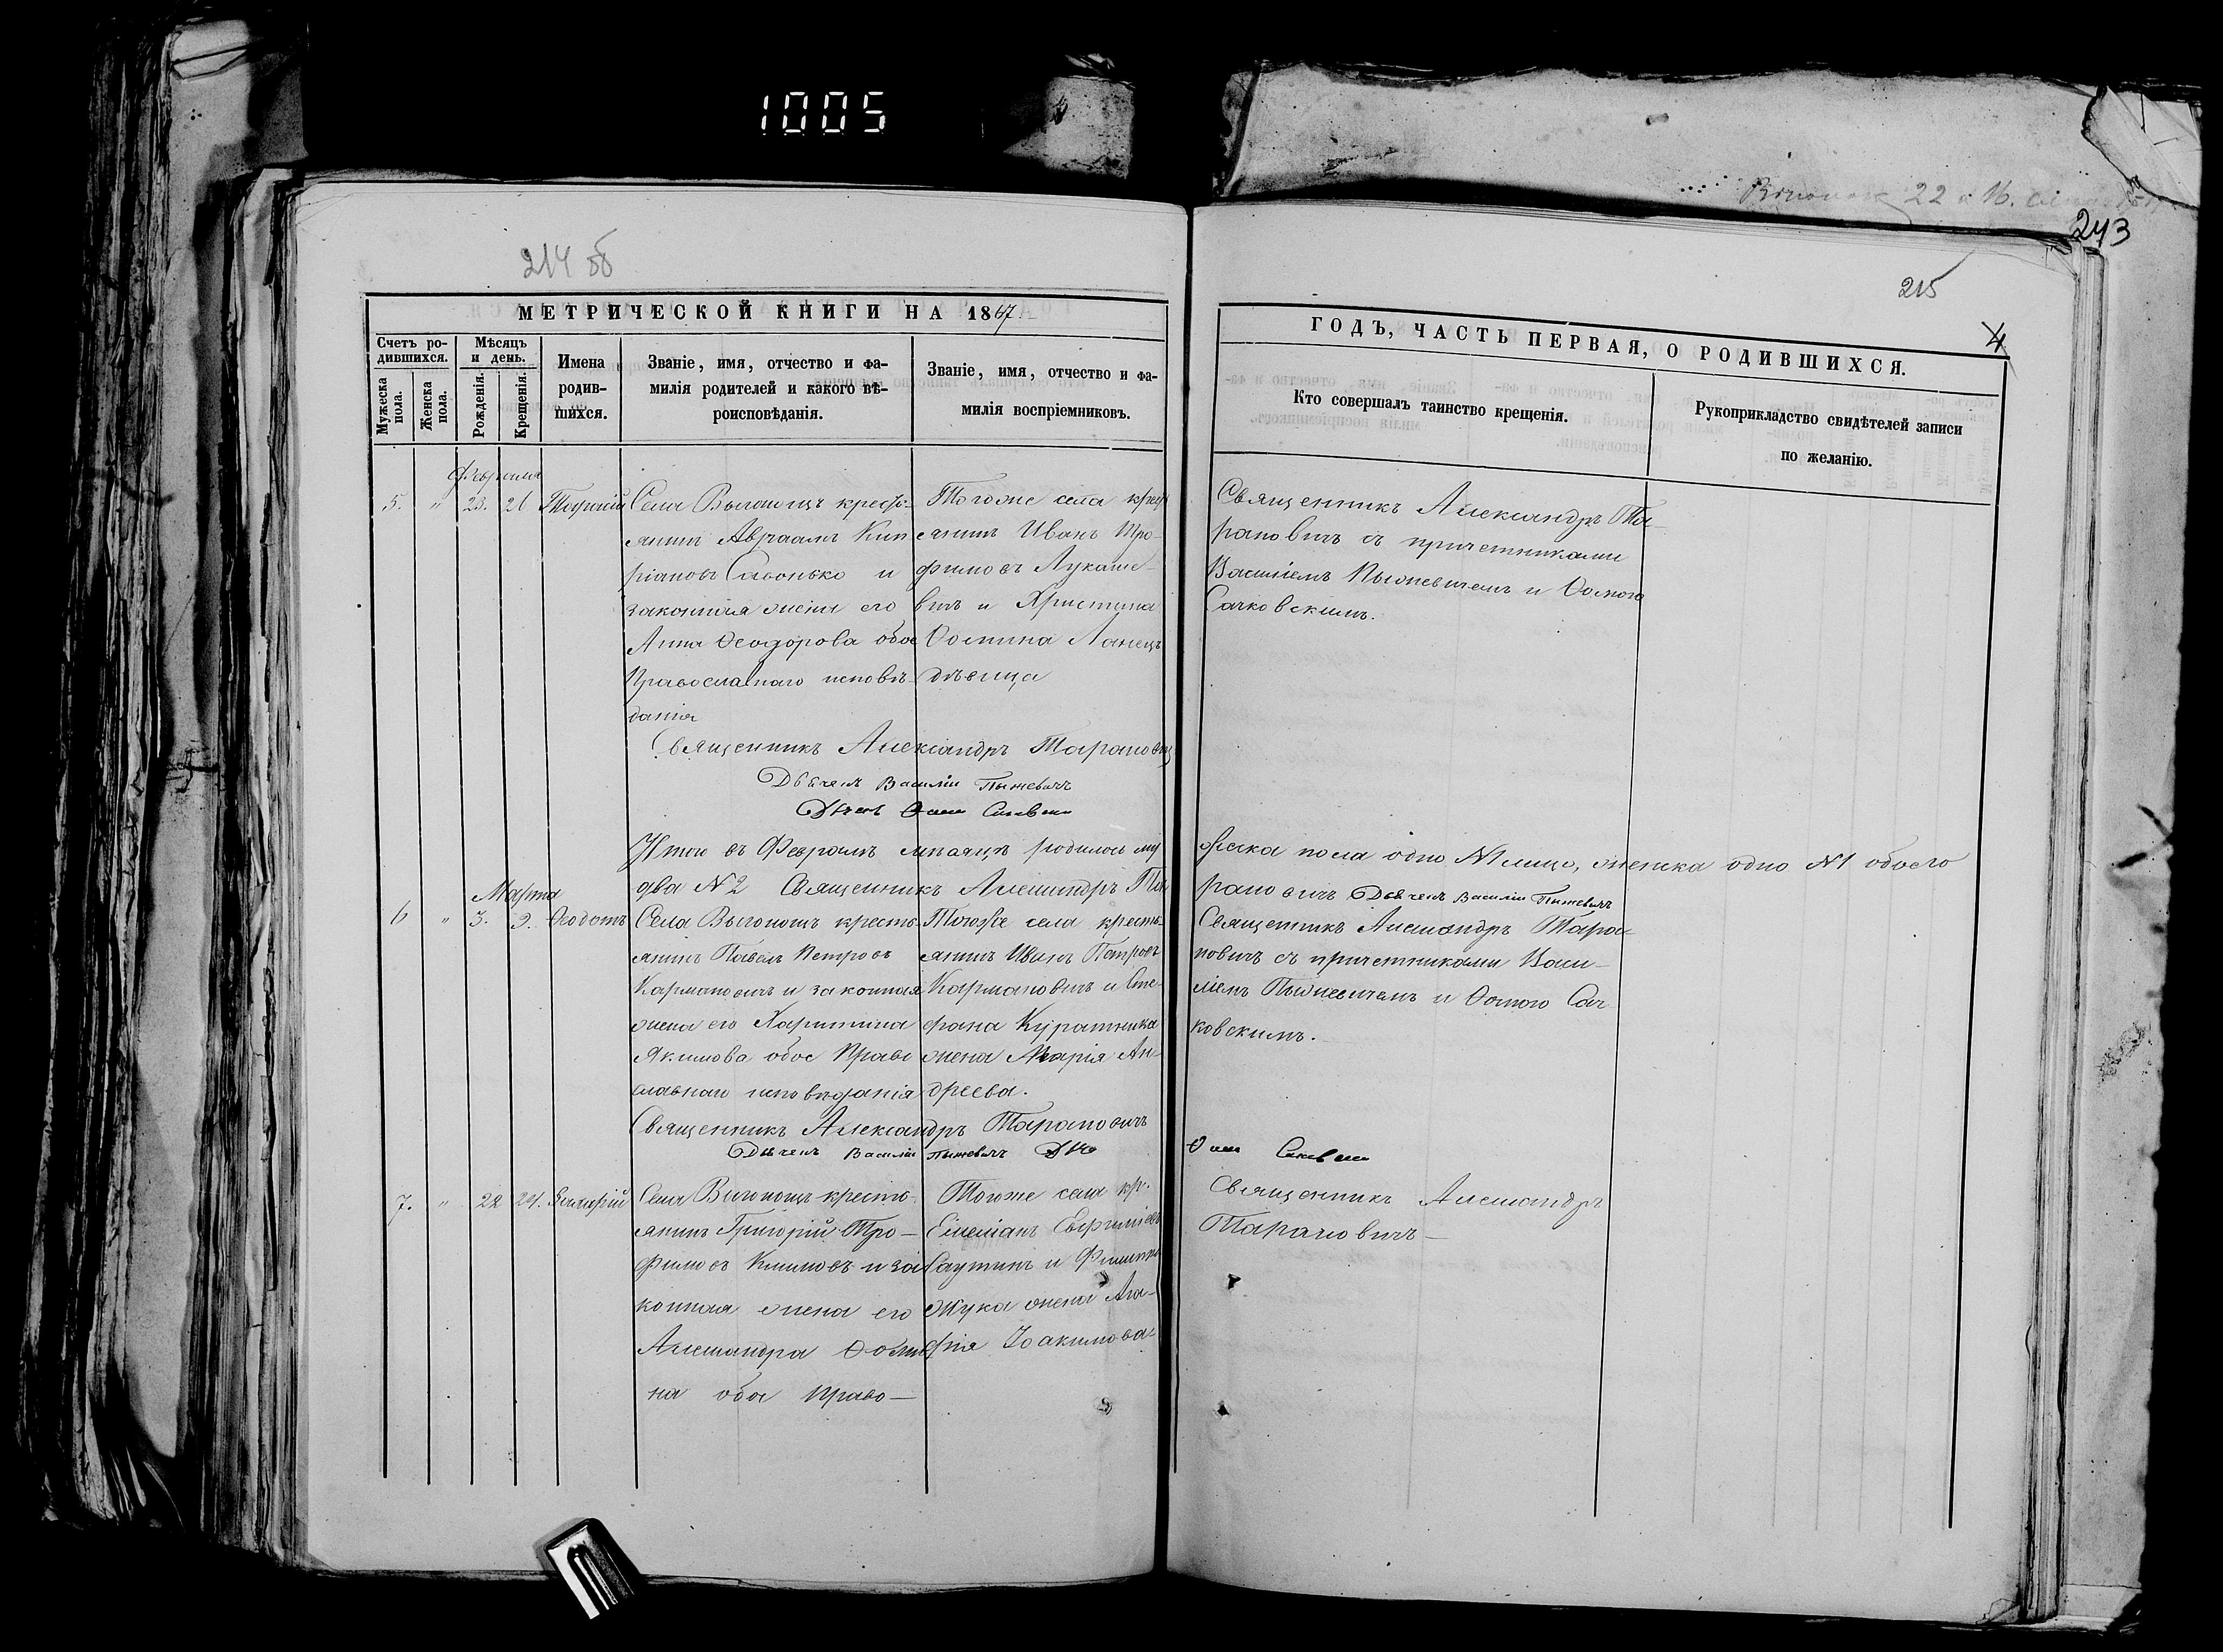 1005
243
214 об
215
4
МЕТРИЧЕСКОЙ КНИГИ НА 1867
ГОДЪ, ЧАСТЬ ПЕРВАЯ, О РОДИВШИХСЯ.
Счетъ ро-
дившихся.
Мужеска
пола.
Женска
пола.
Мѣсяцъ
и день.
Рожденія.
Крещенія.
Имена
родив-
шихся.
Званіе, имя, отчество и фа-
милія родителей и какого вѣ-
роисповѣданія.
Званіе, имя, отчество и фа-
милія воспріемниковъ.
Кто совершалъ таинство крещенія.
Рукоприкладство свидѣтелей записи
по желанію.
Февраля
5. " 23. 26
Села Выгонощъ кресть-
янинъ Авраамъ Кип
ріановъ Савонько и
законная жена его
Анна Ѳеодорова обое
Православнаго исповѣ-
данія
Тогоже села крес
янинъ Иванъ Тро-
фимовъ Лукаше-
вичъ и Христина
Ѳомина Ланецъ
дѣвица
Священникъ Александръ Та-
рановичъ съ причетниками
Василіемъ Пыжневичемъ и Ѳомою
Сачковскимъ.
Священникъ Александръ Тарановичъ
Дьячекъ Василій Пыжевичъ
Итого въ Февралѣ мѣсяцѣ родилось му
жеска пола одно №1 лице, женска одно №1 обоего
два №2 Священникъ Александръ Та
рановичъ Дьячекъ Василій Пыжевичъ
Марта
6 " 3. 9. Ѳеодотъ
Села Выгонощъ кресть-
янинъ Павелъ Петровъ
Кармановичъ и законная
жена его Харитина
Якимова обое Право
славнаго исповѣданія
Тогоже села кресть-
янинъ Иванъ Петровъ
Кармановичъ и Сте-
фана Куратника
жена Марія Ан-
дреева.
Священникъ Александръ Тара-
новичъ съ причетниками Васи-
ліемъ Пыжневичемъ и Ѳомою Сач
ковскимъ.
Священникъ Александръ Тарановичъ
Дьячекъ Василій Пыжевичъ
7. " 22 24.
Села Выгонощъ кресть-
янинъ Григорій Тро-
фимовъ Климовъ и за
конная жена его
Александра Ѳоми
на обое Право-
Тогоже села кр.
Емеліанъ Евфиміевъ
Саутинъ и Филиппа
Жука жена Ага-
фія Іоакимова
Священникъ Александръ
Тарановичъ